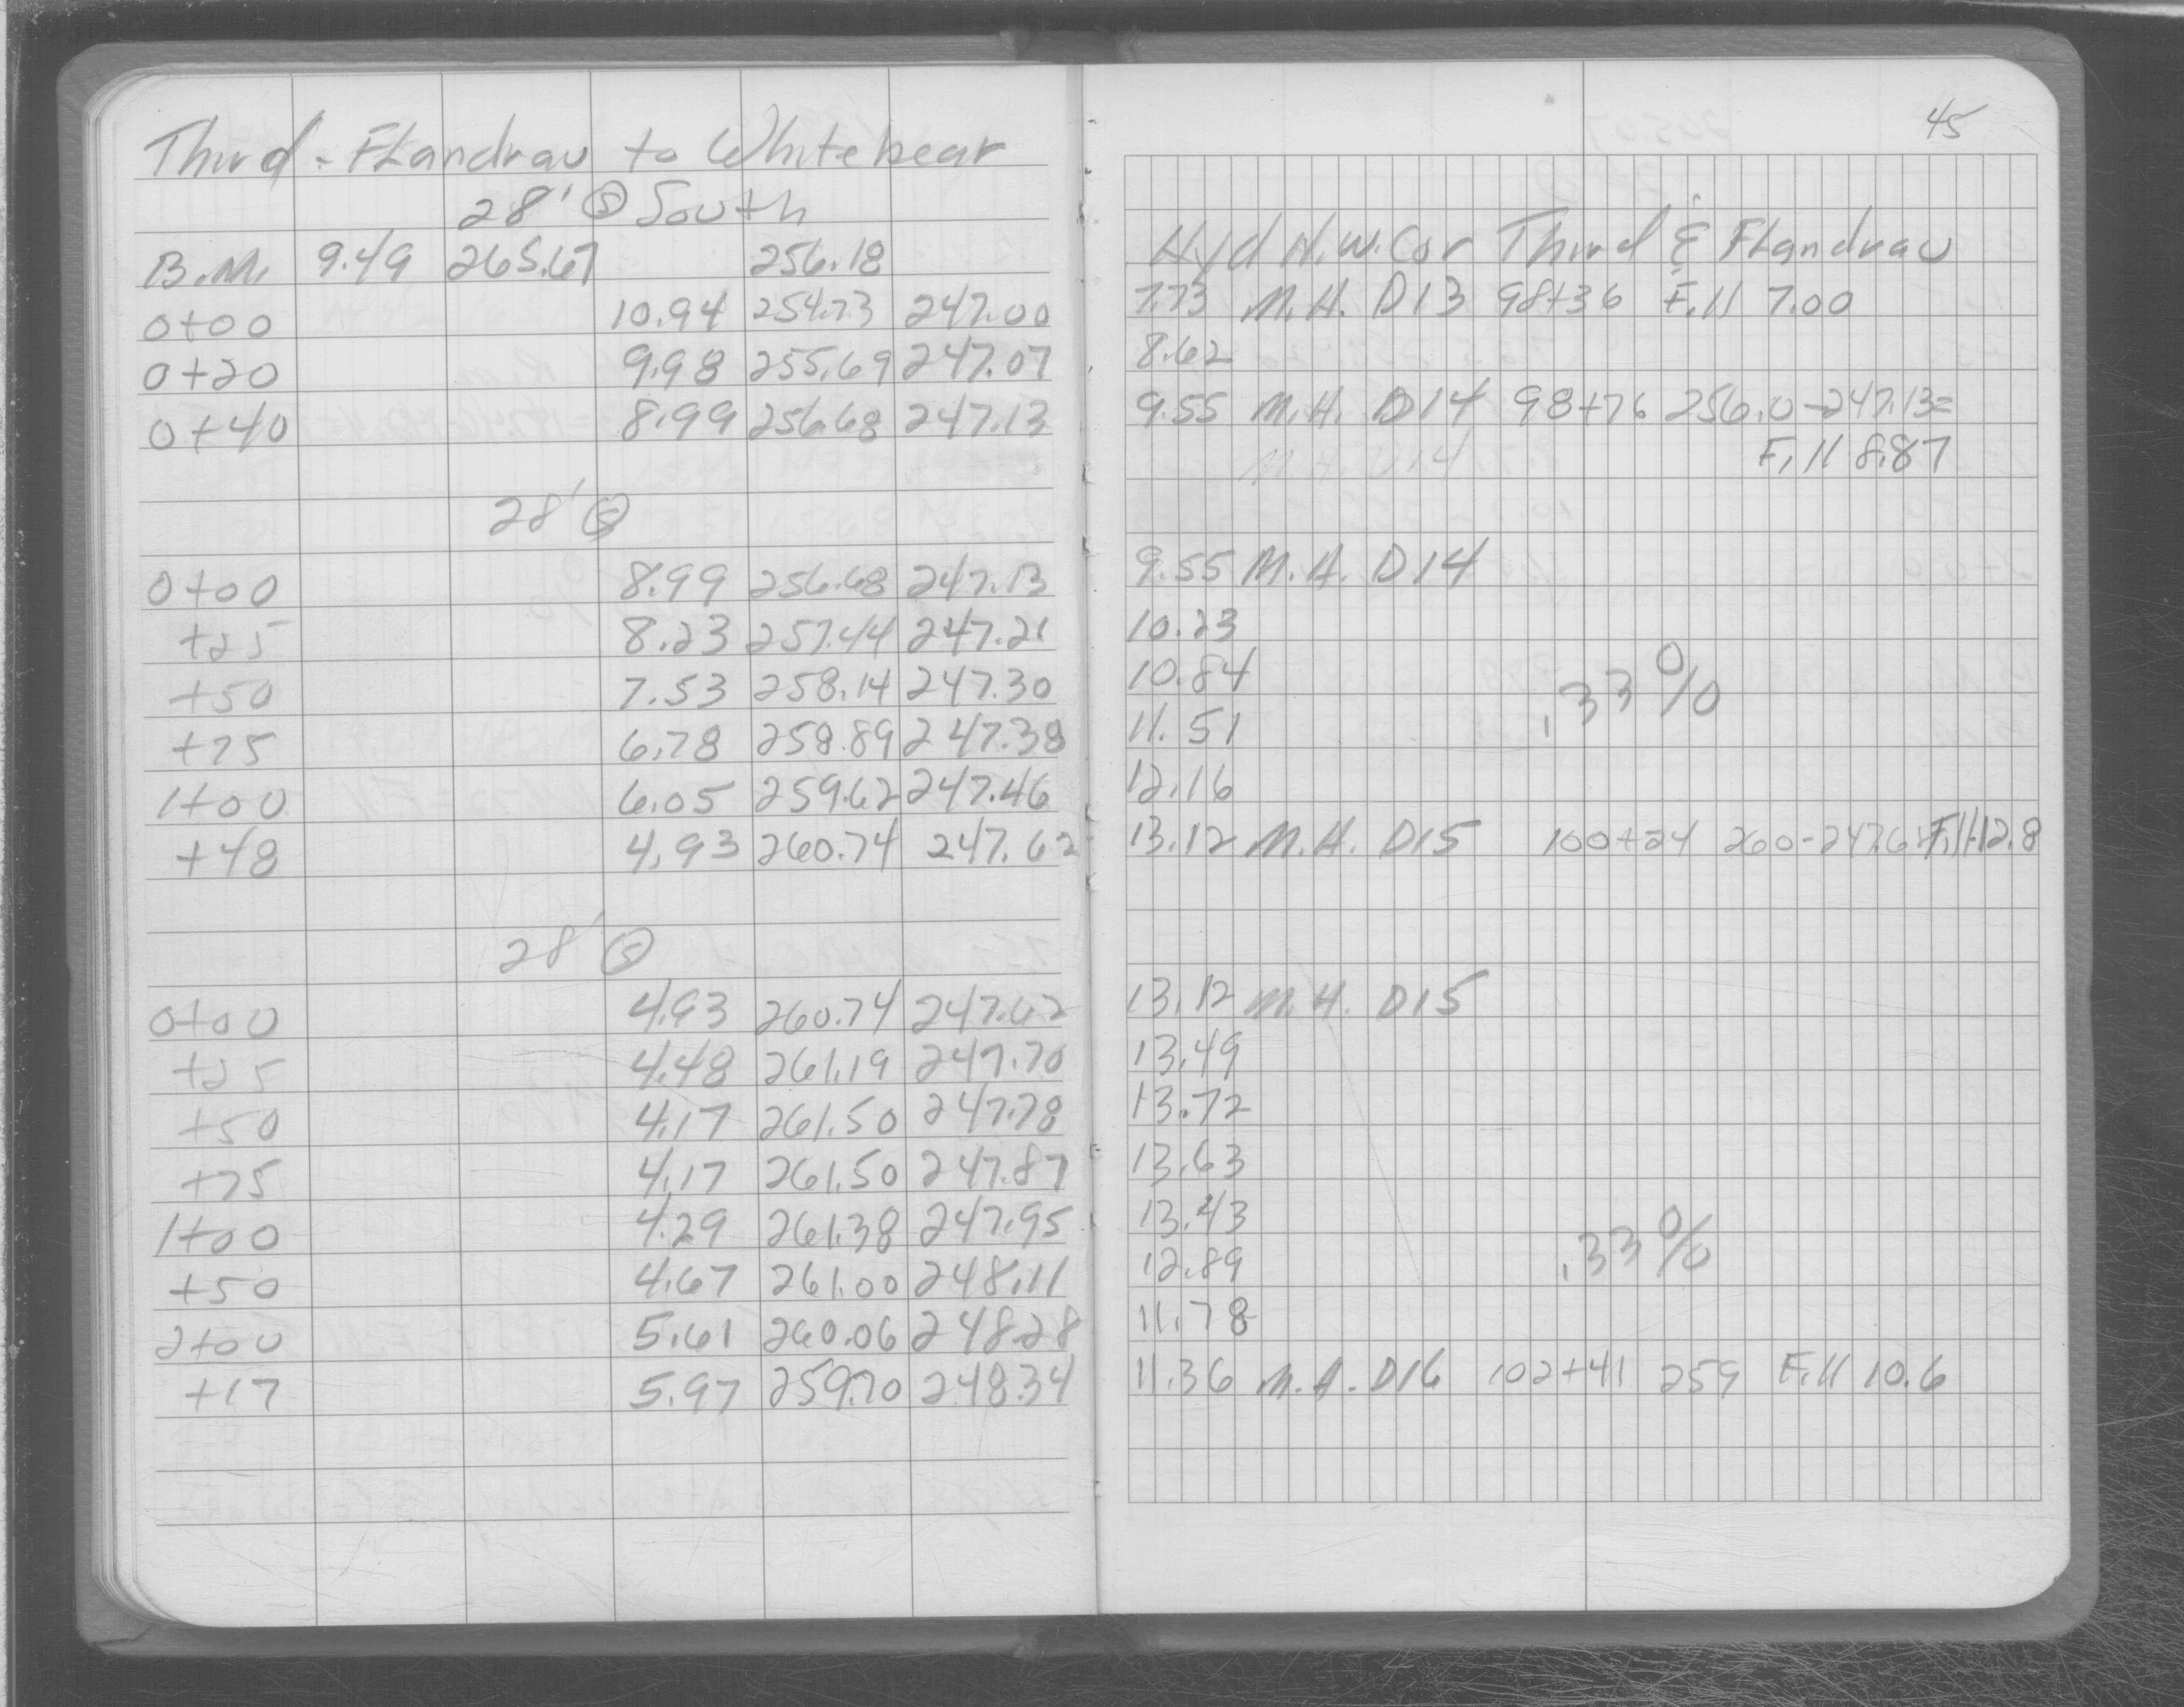 Third - Flandrau to Whitebear
28' Ⓢ South
B.M. 9.49 265.67 256.18
0+00 10.94 254.73 247.00
0+20 9.98 255.69 247.07
0+40 8.99 256.68 247.13
28' Ⓢ
0+00 8.99 256.68 247.13
+25 8.23 257.44 247.21
+50 7.53 258.14 247.30
+75 6.78 258.89 247.38
1+00 6.05 259.62 247.46
+48 4.93 260.74 247.62
28' Ⓢ
0+00 4.93 260.74 247.62
+25 4.48 261.19 247.70
+50 4.17 261.50 247.78
+75 4.17 261.50 247.87
1+00 4.29 261.38 247.95
+50 4.67 261.00 248.11
2+00 5.61 260.06 248.28
+17 5.97 259.70 248.34
45
Hyd N.W. Cor Third & Flandrau
7.73 M.H. D13 98+36 Fill 7.00
8.62
9.55 M.H. D14 98+76 256.0-247.13=
Fill 8.87
9.55 M.H. D14
10.23
10.84
.33%
11.51
12.16
13.12 M.H. D15 100+24 260-247.6 Fill 12.8
13.12 M.H. D15
13.49
13.72
13.63
13.43
12.89
.33%
11.78
11.36 M.H. D16 102+41 259 Fill 10.6